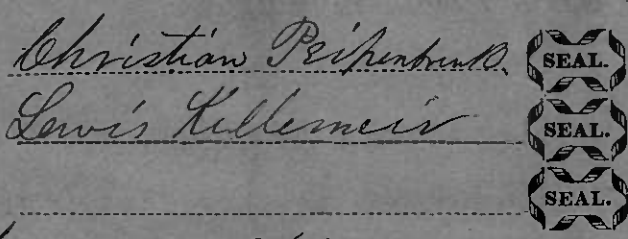 Christian Peipenbrink SEAL.
Lewis Kellemeir SEAL.
SEAL.